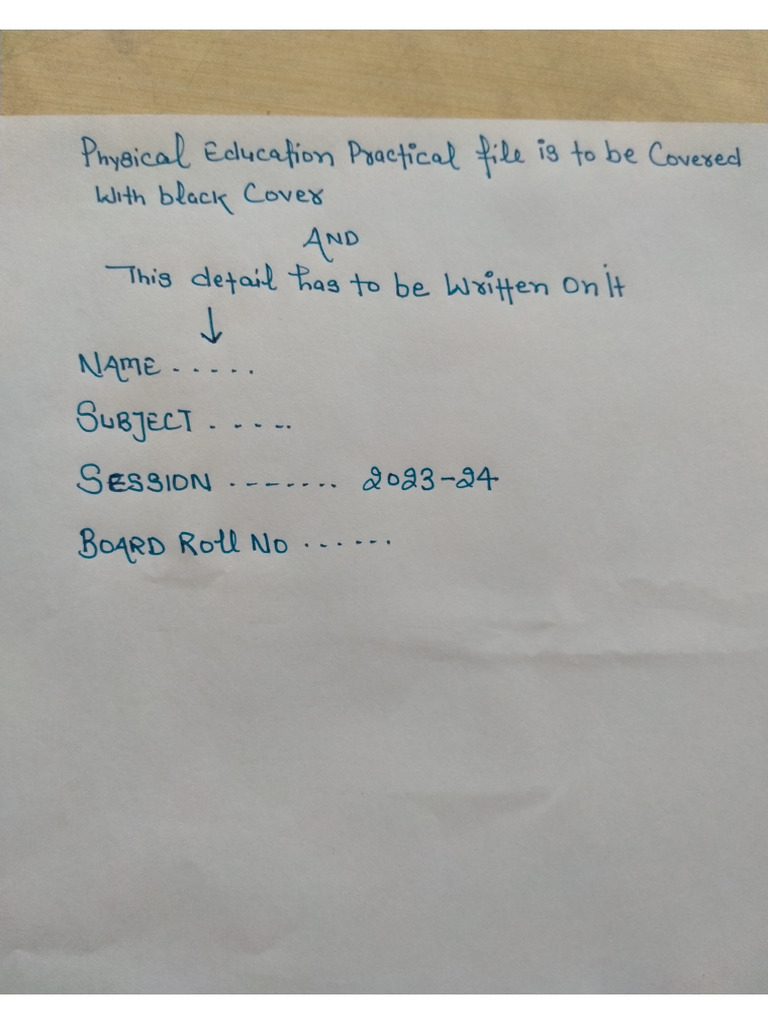 Physical Education Practical file is to be Covered
With black Cover
AND
This detail has to be Written On it
↓
NAME .....
SUBJECT .....
SESSION ........ 2023-24
BOARD Roll NO ......